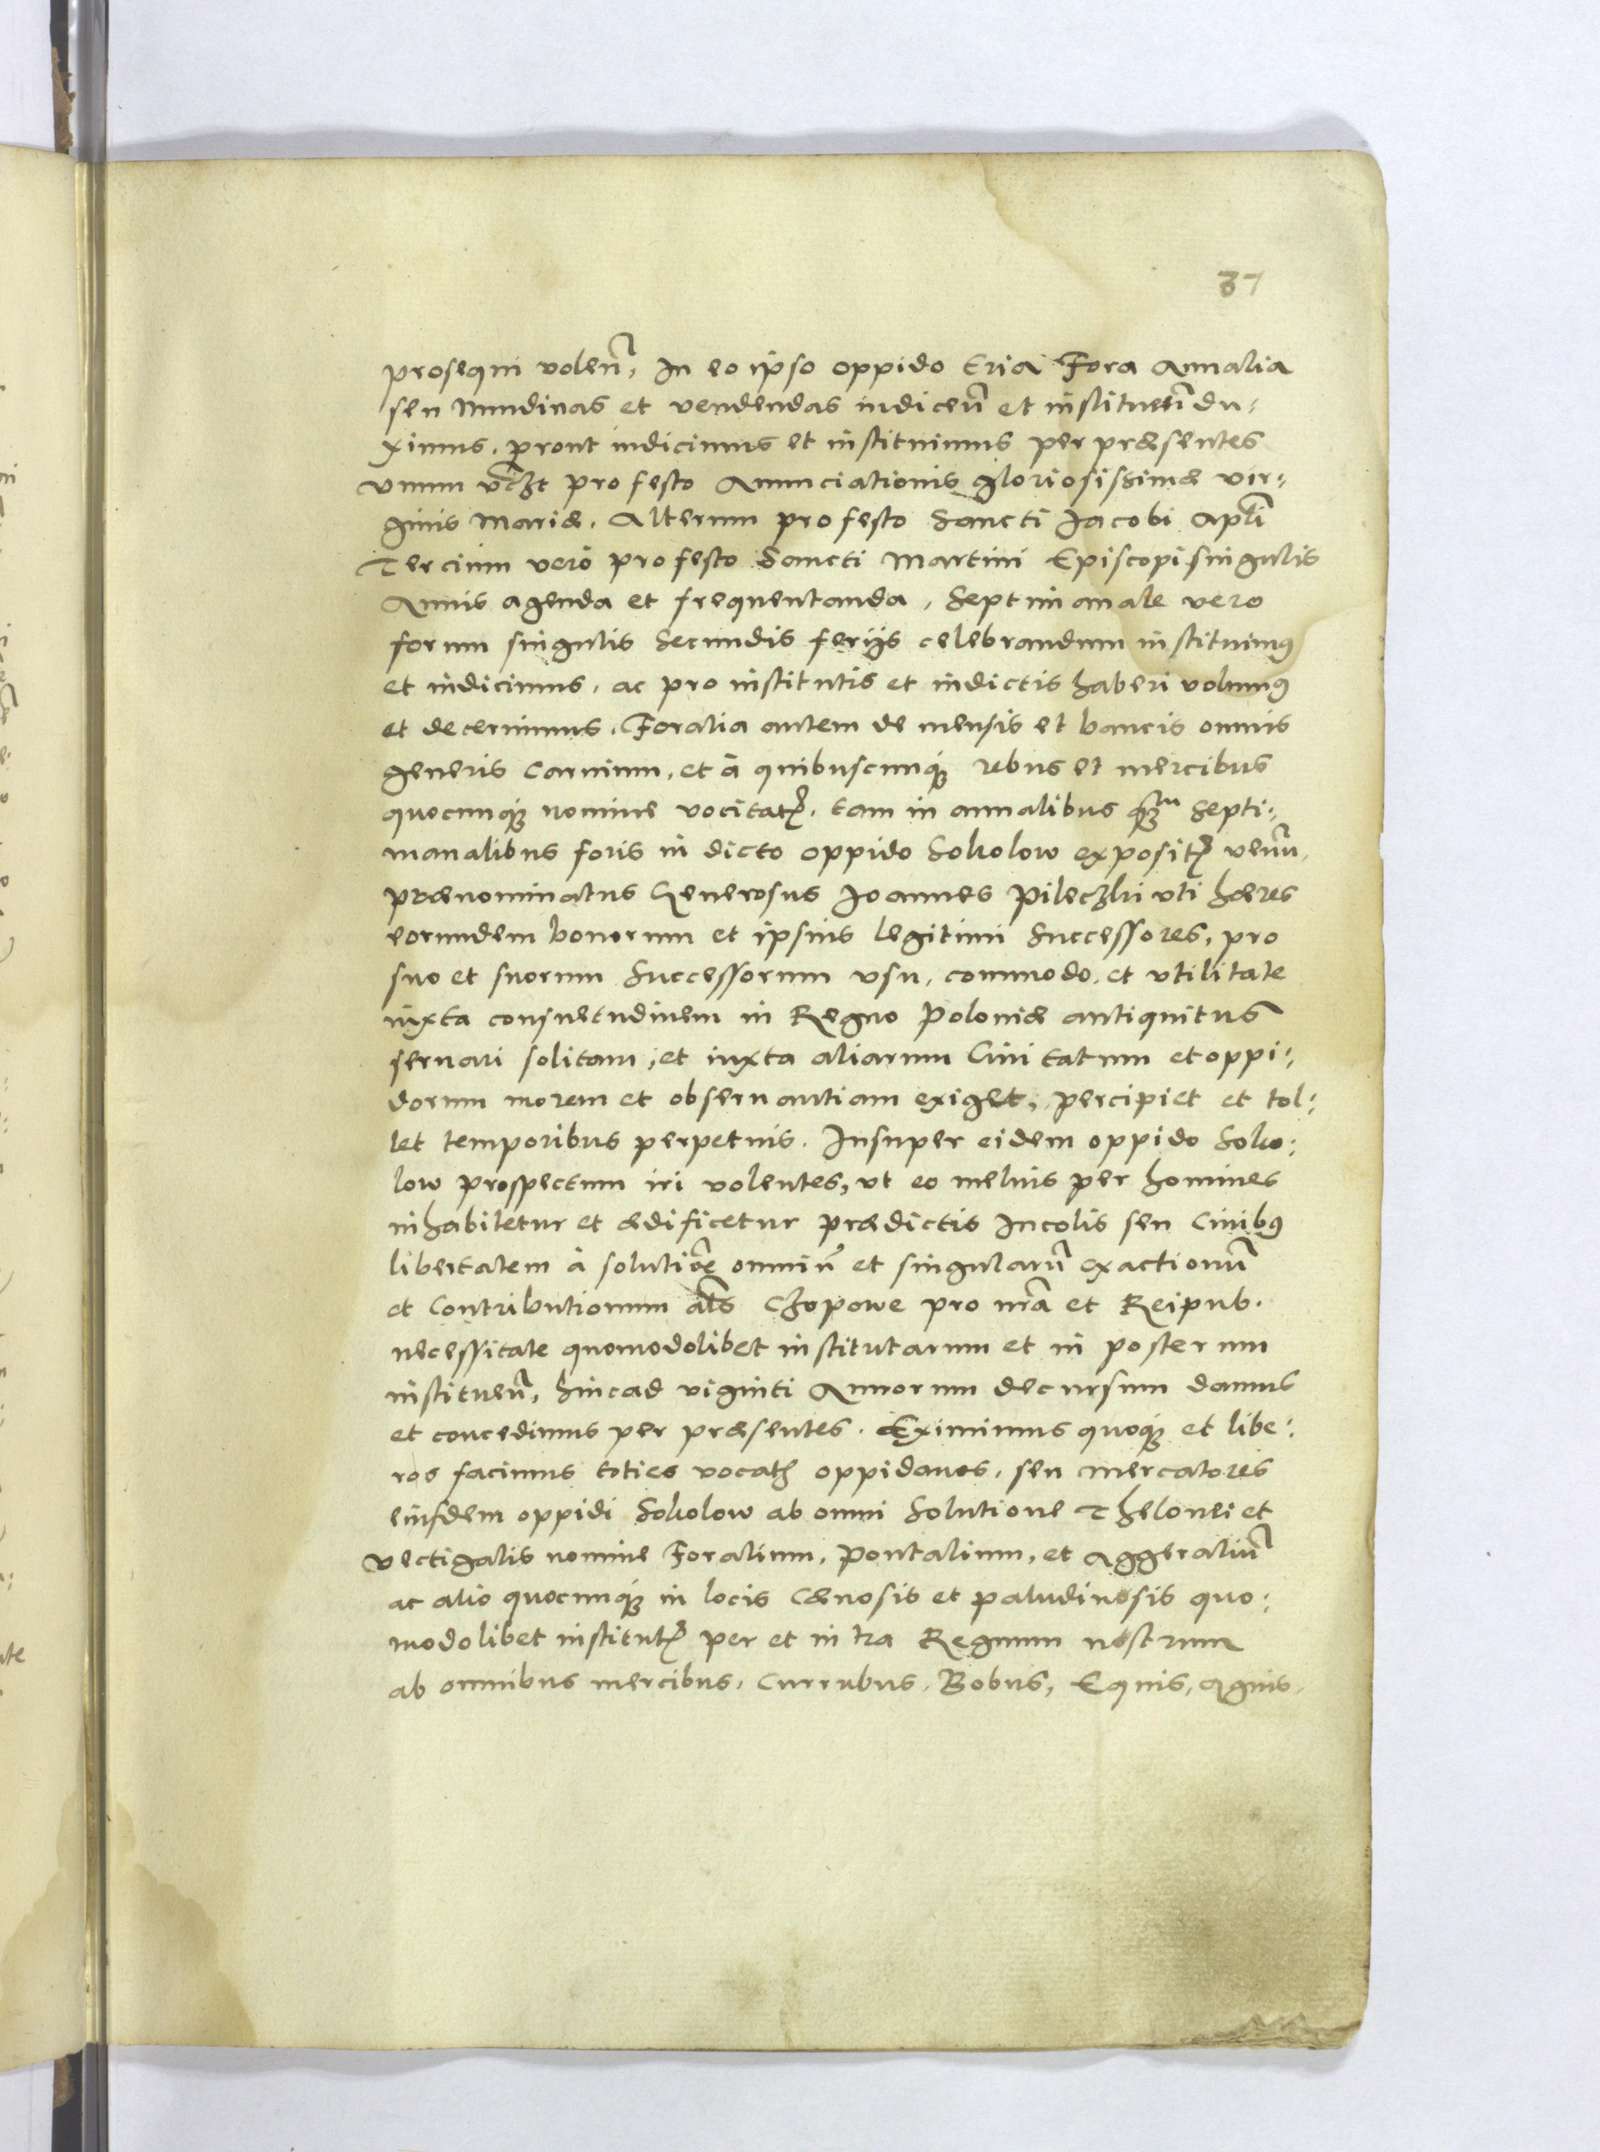 37
prosequi volen̄, In eo ipso oppido tria Fora Annalia
seu Nundinas et vendendas indicen̄ et instituen̄ du-
ximus, prout indicimus et instituimus per præsentes
vnum vczt pro festo Annunciationis gloriosissimæ vir-
ginis Mariæ. Alterum pro festo Sancti Jacobi Apl̄i
Tercium vero pro festo Sancti Martini Episcopi singulis
Annis agenda et frequentanda, Septimanale vero
forum singulis Secundis ferijs celebrandum instituimus
et indicimus, ac pro institutis et indictis haberi volumus
et decernimus. Foralia autem de mensis et bancis omnis
generis Carnium, et à quibuscunque rebus et mercibus
quocunque nomine vocitatis, tam in annalibus quam Septi-
manalibus foris in dicto oppido Sokolow expositis venum,
prænominatus Generosus Joannes Pileczki vti hæres
eorundem bonorum et ipsius legitimi Successores, pro
suo et suorum Successorum vsu, commodo, et vtilitate
iuxta consuetudinem in Regno Poloniæ antiquitus
seruari solitam, et iuxta aliarum Ciuitatum et oppi-
dorum morem et obseruantiam exiget, percipiet et tol-
let temporibus perpetuis. Insuper eidem oppido Soko-
low prospectum iri volentes, vt eo melius per homines
inhabitetur et ædificetur prædictis Incolis seu Ciuibus
libertatem à solutiōe omniū et singularū exactionū
et Contributionum al̄s Czopowe pro nr̄a et Reipub.
necessitate quomodolibet institutarum et in posterum
instituen̄, hinc ad viginti Annorum decursum damus
et concedimus per præsentes. Eximimus quoque et libe-
ros facimus toties vocatos oppidanos, seu mercatores
eiusdem oppidi Sokolow ab omni Solutione Thelonei et
vectigalis nomine Foralium, Pontalium, et Aggeraliū
ac alio quocunque in locis Cænosis et paludinosis quo-
modolibet institutis per et intra Regnum nostrum
ab omnibus mercibus, Curribus, Bobus, Equis, Agnis,